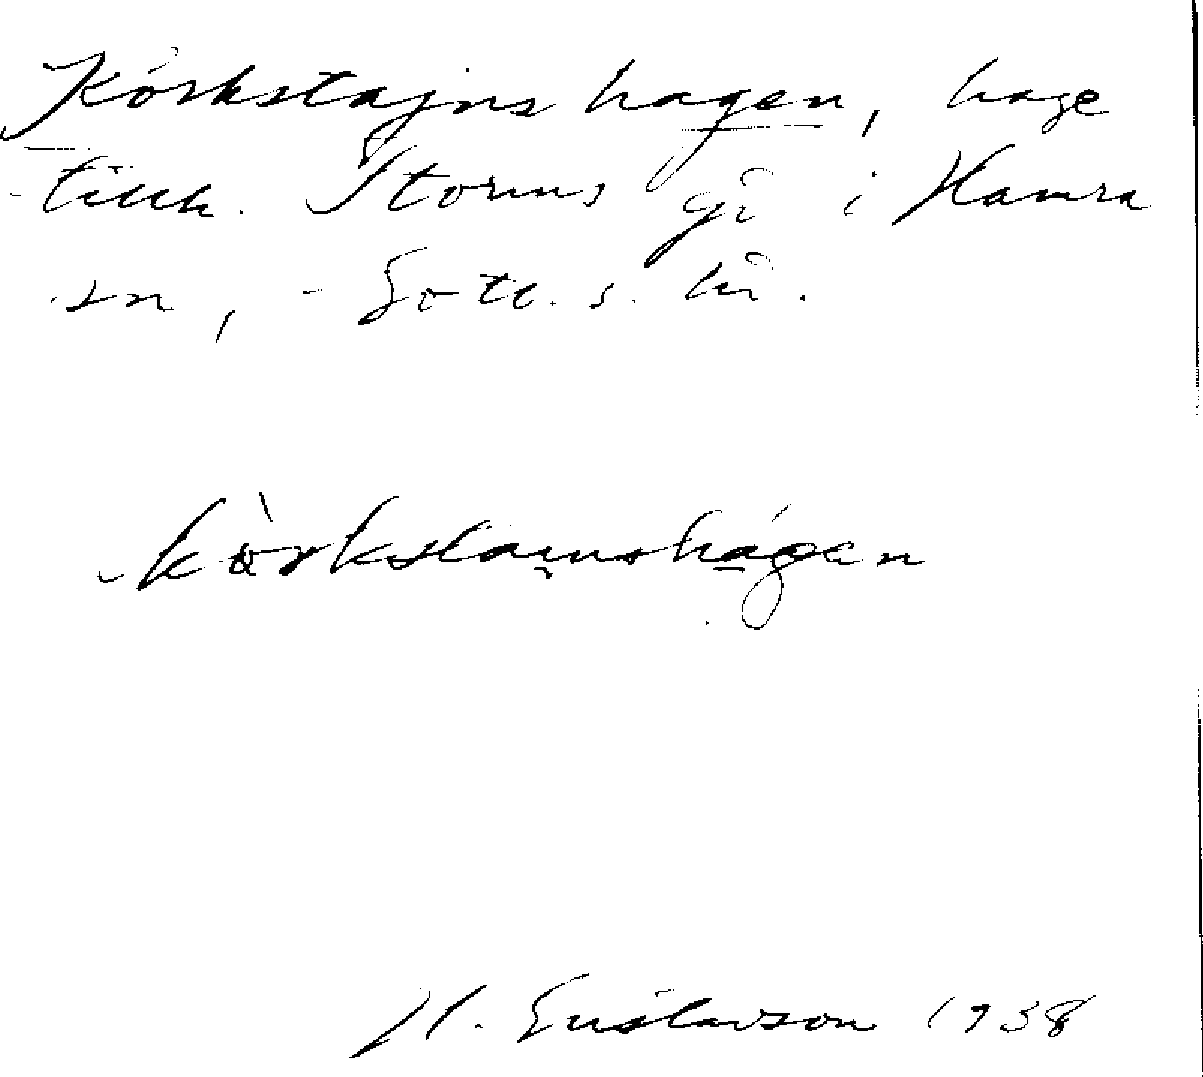 Körkstajnshagen, hage
tillh. Storms gd i Hamra
sn, Gotl. s. hd.
körkstai̯nshágen
H. Gustavson 1938